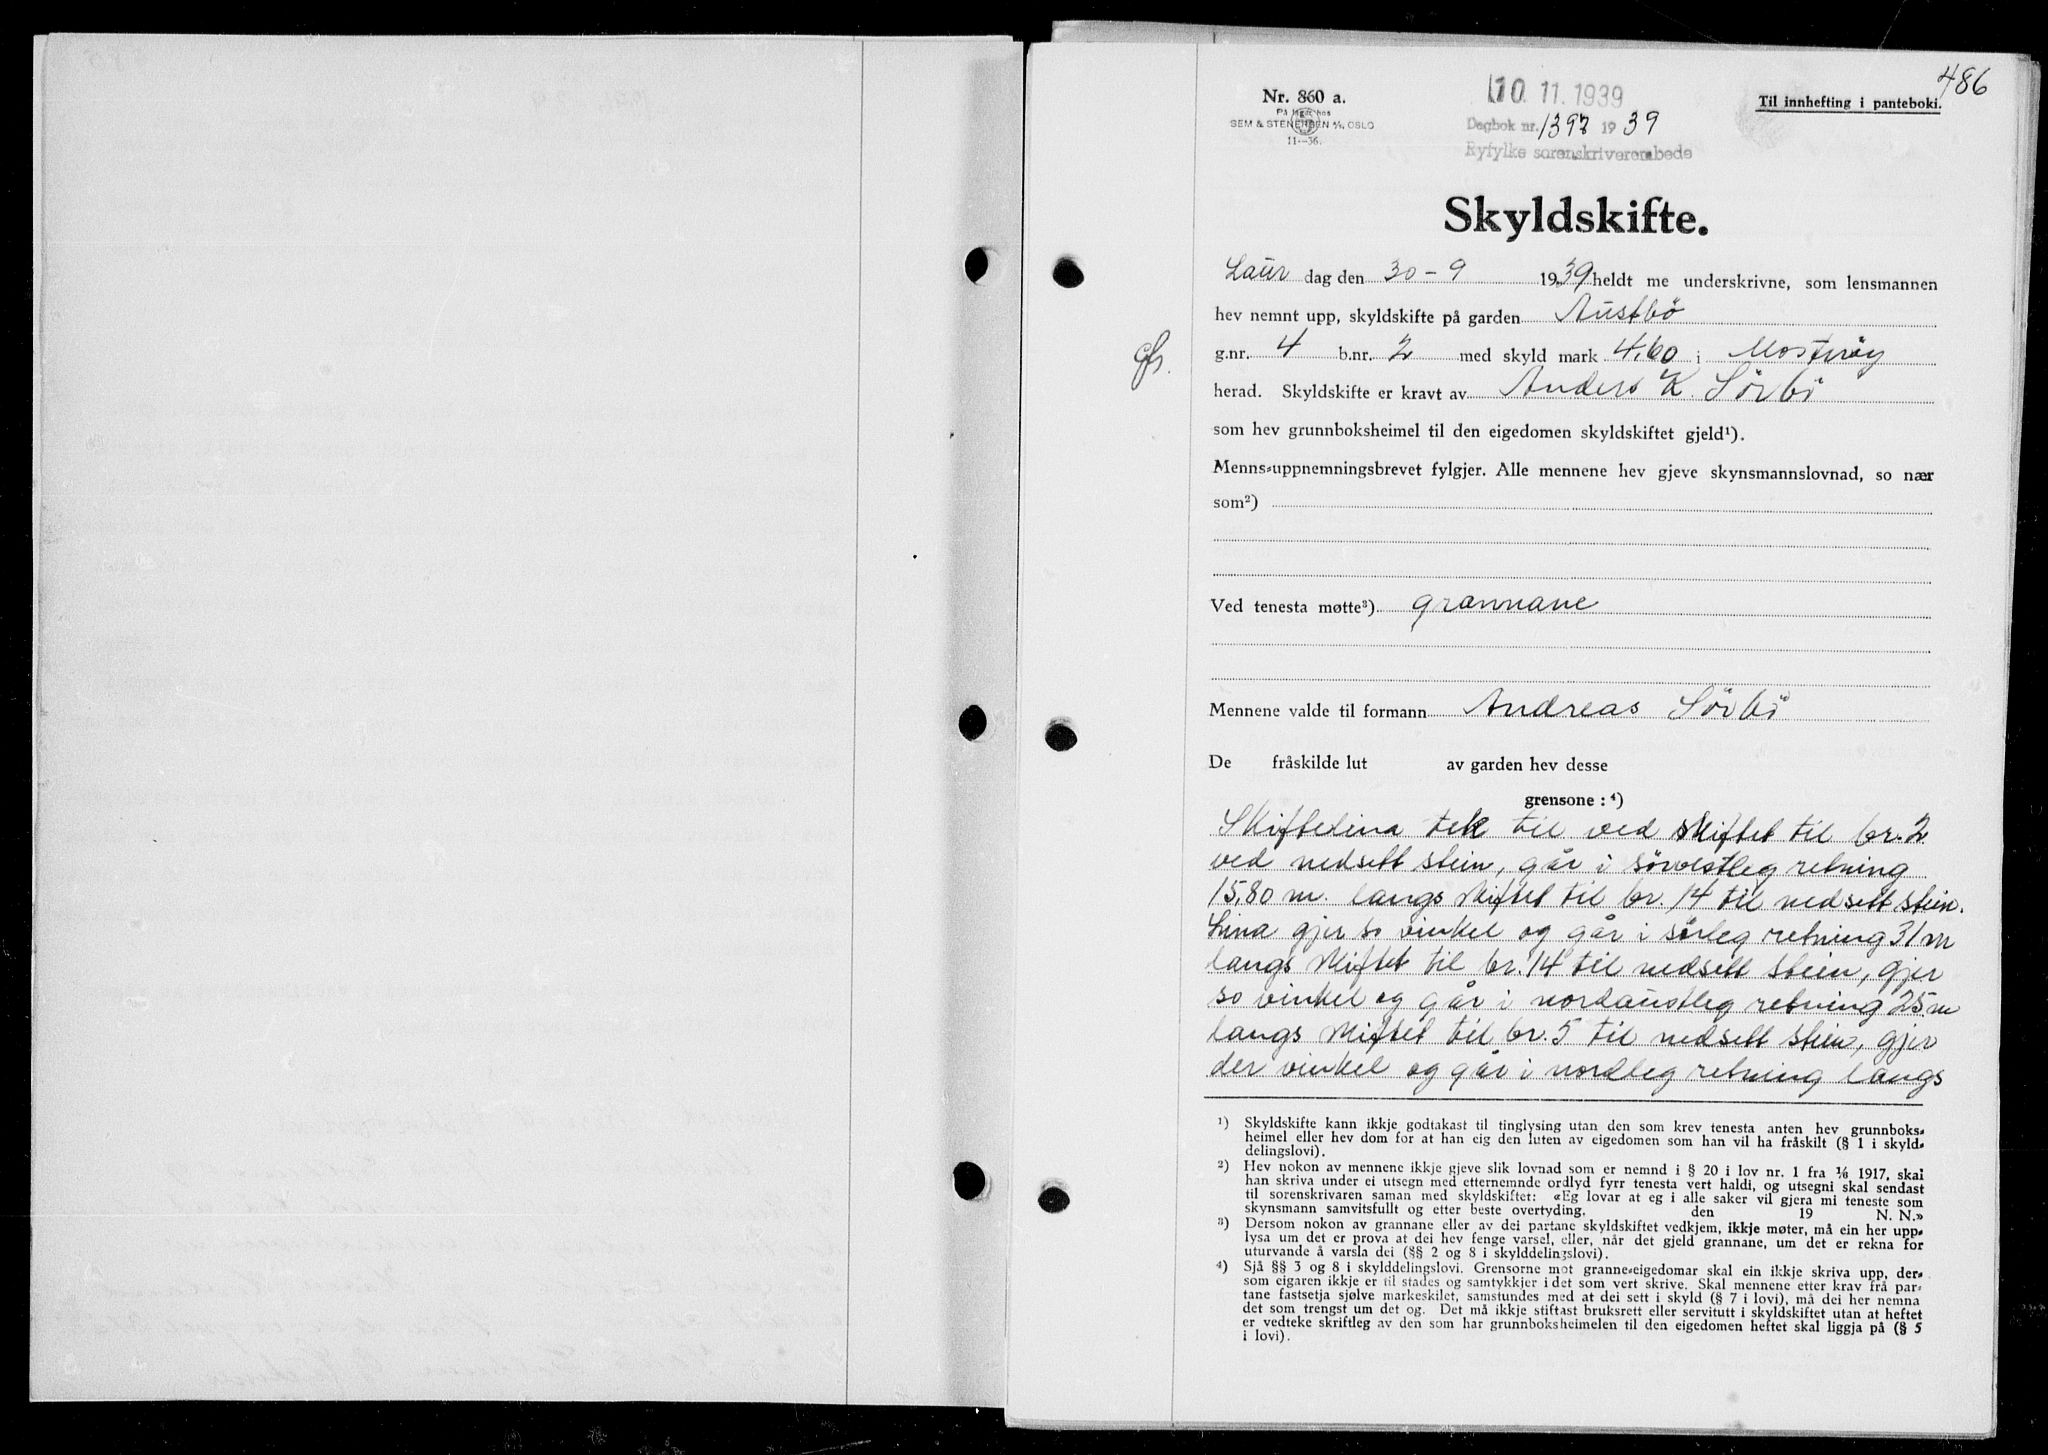 486
Nr. 860 a.
På lager hos
SEM & STENERSEN A/S, OSLO
11—36.
10. 11. 1939
Dagbok nr. 1397 1939
Ryfylke sorenskriverembede
Til innhefting i panteboki.
Skyldskifte.
Laur dag den 30 - 9 1939 heldt me underskrivne, som lensmannen
hev nemnt upp, skyldskifte på garden Austbö
g.nr. 4 b.nr. 2 med skyld mark 4,60 i Mosterøy
herad. Skyldskifte er kravt av Anders K. Sörbö
som hev grunnboksheimel til den eigedomen skyldskiftet gjeld¹).
Menns-uppnemningsbrevet fylgjer. Alle mennene hev gjeve skynsmannslovnad, so nær
som²)
Ved tenesta møtte³) grannane
Mennene valde til formann Andreas Sörbö
De fråskilde lut av garden hev desse
grensone : ⁴)
Skiftelina tek til ved skiftet til br. 2
ved nedsett stein, går i sörvestleg retning
15,80 m. langs skiftet til br. 14 til nedsett stein.
Lina gjer so vinkel og går i sörleg retning 31 m
langs skiftet til br. 14 til nedsett stein, gjer
so vinkel og går i nordaustleg retning 25 m
langs skiftet til br. 5 til nedsett stein, gjer
der vinkel og går i nordleg retning langs
¹) Skyldskifte kann ikkje godtakast til tinglysing utan den som krev tenesta anten hev grunnboks-
heimel eller hev dom for at han eig den luten av eigedomen som han vil ha fråskilt (§ 1 i skyld-
delingslovi).
²) Hev nokon av mennene ikkje gjeve slik lovnad som er nemnd i § 20 i lov nr. 1 fra 1/6 1917, skal
han skriva under ei utsegn med etternemnde ordlyd fyrr tenesta vert haldi, og utsegni skal sendast
til sorenskrivaren saman med skyldskiftet: «Eg lovar at eg i alle saker vil gjera mi teneste som
skynsmann samvitsfullt og etter beste overtyding. den 19 N. N.»
³) Dersom nokon av grannane eller av dei partane skyldskiftet vedkjem, ikkje møter, må ein her upp-
lysa um det er prova at dei hev fenge varsel, eller, når det gjeld grannane, um det er rekna for
uturvande å varsla dei (§§ 2 og 8 i skylddelingslovi).
⁴) Sjå §§ 3 og 8 i skylddelingslovi. Grensorne mot granne-eigedomar skal ein ikkje skriva upp, der-
som eigaren ikkje er til stades og samtykkjer i det som vert skrive. Skal mennene etter krav frå par-
tane fastsetja sjølve merkeskilet, samstundes med at dei sett i skyld (§ 7 i lovi), må dei her nemna
det som trengst um det og. Det må ikkje stiftast bruksrett eller servitutt i skyldskiftet utan at heftet
er vedteke skriftleg av den som har grunnboksheimelen til den eigedomen heftet skal liggja på (§ 5
i lovi).